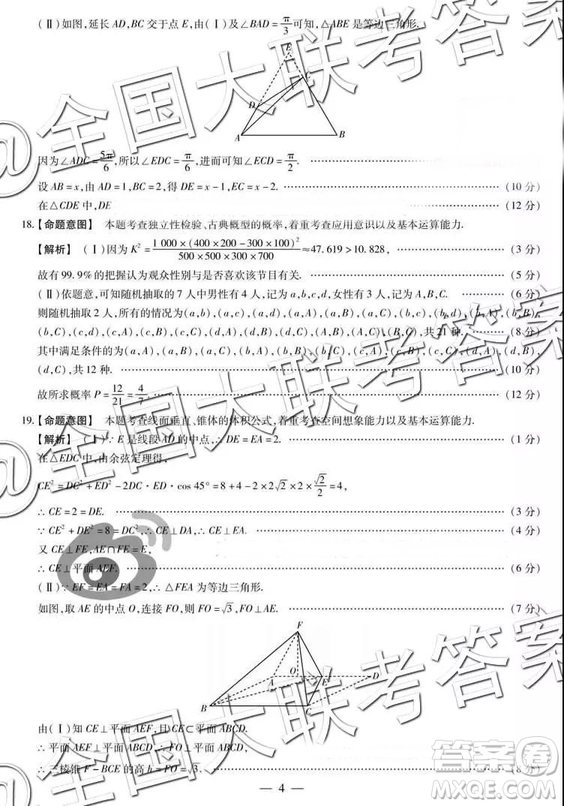 (Ⅱ)如图,延长 AD,BC 交于点 E,由(Ⅰ)及∠BAD = π/3 可知,△ABE 是等边三角形.
E
D
C
A
B
因为∠ADC = 5π/6,所以∠EDC = π/6,进而可知∠ECD = π/2.
设 AB = x,由 AD = 1,BC = 2,得 DE = x - 1,EC = x - 2. (10 分)
在△CDE 中,DE (12 分)
18.【命题意图】 本题考查独立性检验、古典概型的概率,着重考查应用意识以及基本运算能力.
【解析】 (Ⅰ)因为 K² = 1 000 × (400 × 200 - 300 × 100)² / 500 × 500 × 300 × 700 ≈ 47.619 > 10.828, (3 分)
故有 99.9% 的把握认为观众性别与是否喜欢该节目有关. (5 分)
(Ⅱ)依题意,可知随机抽取的 7 人中男性有 4 人,记为 a,b,c,d,女性有 3 人,记为 A,B,C. (6 分)
则随机抽取 2 人,所有的情况为(a,b),(a,c),(a,d),(a,A),(a,B),(a,C),(b,c),(b,d),(b,A),(b,B),
(b,C),(c,d),(c,A),(c,B),(c,C),(d,A),(d,B),(d,C),(A,B),(A,C),(B,C),共 21 种. (8 分)
其中满足条件的为(a,A),(a,B),(a,C),(b,A),(b,B),(b,C),(c,A),(c,B),(c,C),(d,A),(d,B),
(d,C),共 12 种. (10 分)
故所求概率 P = 12/21 = 4/7. (12 分)
19.【命题意图】 本题考查线面垂直、锥体的体积公式,着重考查空间想象能力以及基本运算能力.
【解析】 (Ⅰ)∵E 是线段 AD 的中点,∴DE = EA = 2. (1 分)
在△EDC 中,由余弦定理得,
CE² = DC² + ED² - 2DC · ED · cos 45° = 8 + 4 - 2 × 2√2 × 2 × √2/2 = 4,
∴CE = 2 = DE. (3 分)
∵CE² + DE² = 8 = DC²,∴CE⊥DA,∴CE⊥EA. (4 分)
又 CE⊥FE,AE∩FE = E,
∴CE⊥平面 AEF. (6 分)
(Ⅱ)∵EF = EA = FA = 2,∴△FEA 为等边三角形.
如图,取 AE 的中点 O,连接 FO,则 FO = √3,FO⊥AE. (7 分)
F
A
O
E
D
B
C
由(Ⅰ)知 CE⊥平面 AEF,而 CE⊂平面
∴平面 AEF⊥平面
∴三棱锥 F - BCE 的高 h = FO = √3.
— 4 —
@全国大联考答案
答案圈
MXQE.COM